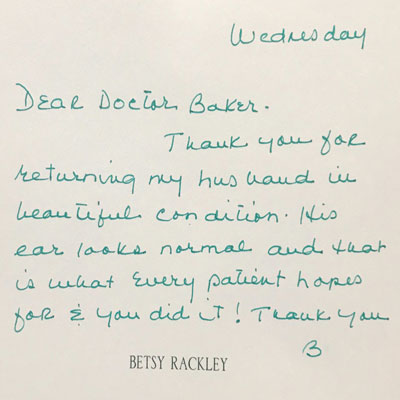 Wednesday
Dear Doctor Baker.
Thank you for
returning my husband in
beautiful condition. His
ear looks normal and that
is what every patient hopes
for & you did it! Thank you
B
BETSY RACKLEY